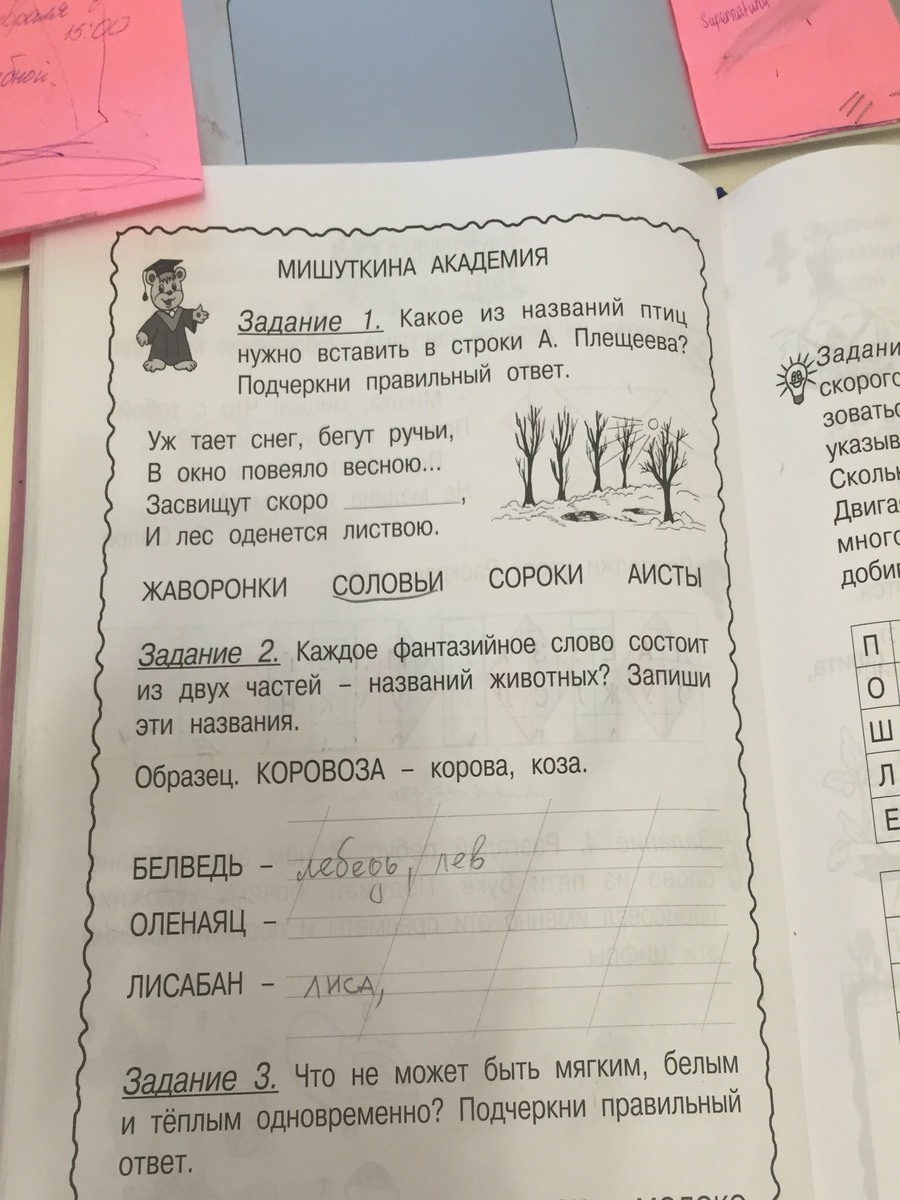 15:00
Supernatural
МИШУТКИНА АКАДЕМИЯ
Задание 1. Какое из названий птиц
нужно вставить в строки А. Плещеева?
Подчеркни правильный ответ.
Уж тает снег, бегут ручьи,
В окно повеяло весною...
Засвищут скоро ,
И лес оденется листвою.
ЖАВОРОНКИ СОЛОВЬИ СОРОКИ АИСТЫ
Задание 2. Каждое фантазийное слово состоит
из двух частей – названий животных? Запиши
эти названия.
Образец. КОРОВОЗА – корова, коза.
БЕЛВЕДЬ – лебедь, лев
ОЛЕНАЯЦ –
ЛИСАБАН – лиса,
Задание 3. Что не может быть мягким, белым
и тёплым одновременно? Подчеркни правильный
ответ.
Задани
скорого
зоватьс
указыв
Скольк
Двига
много
добив
П
О
Ш
Л
Е